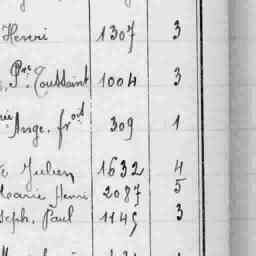 Henri 1307 3
Pre Toussaint 1004 3
Ange, frois 309 1
Julien 1632 4
Marie Henri 2087 5
seph, Paul 1145 3